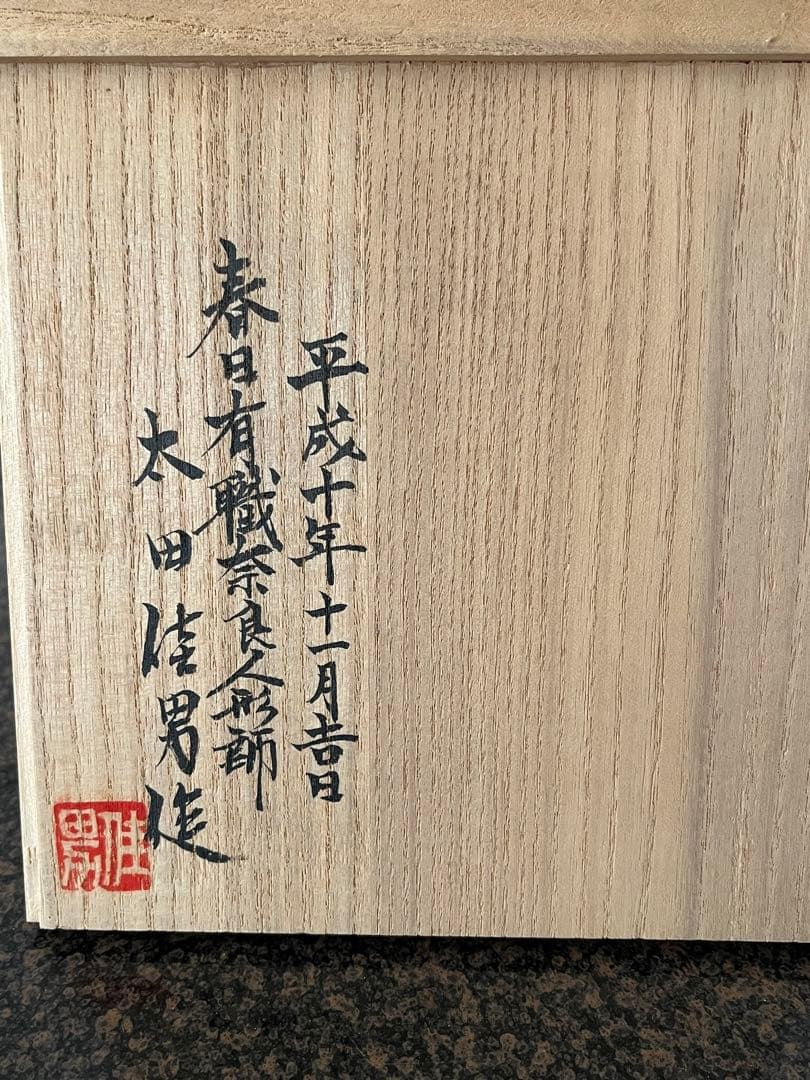 平成十年十一月吉日
春日有職奈良人形師
太田佳男作
佳男